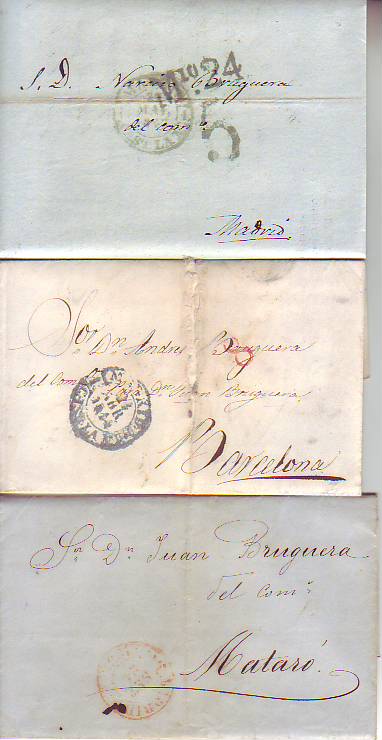 S. D. Narciso Bruguera
24
del com.º
5
Madrid
Sor. Dn. Andres Bruguera
del Com.º Dn. Juan Bruguera
Barcelona
Sr. Dn. Juan Bruguera
del Com.º
Mataró.